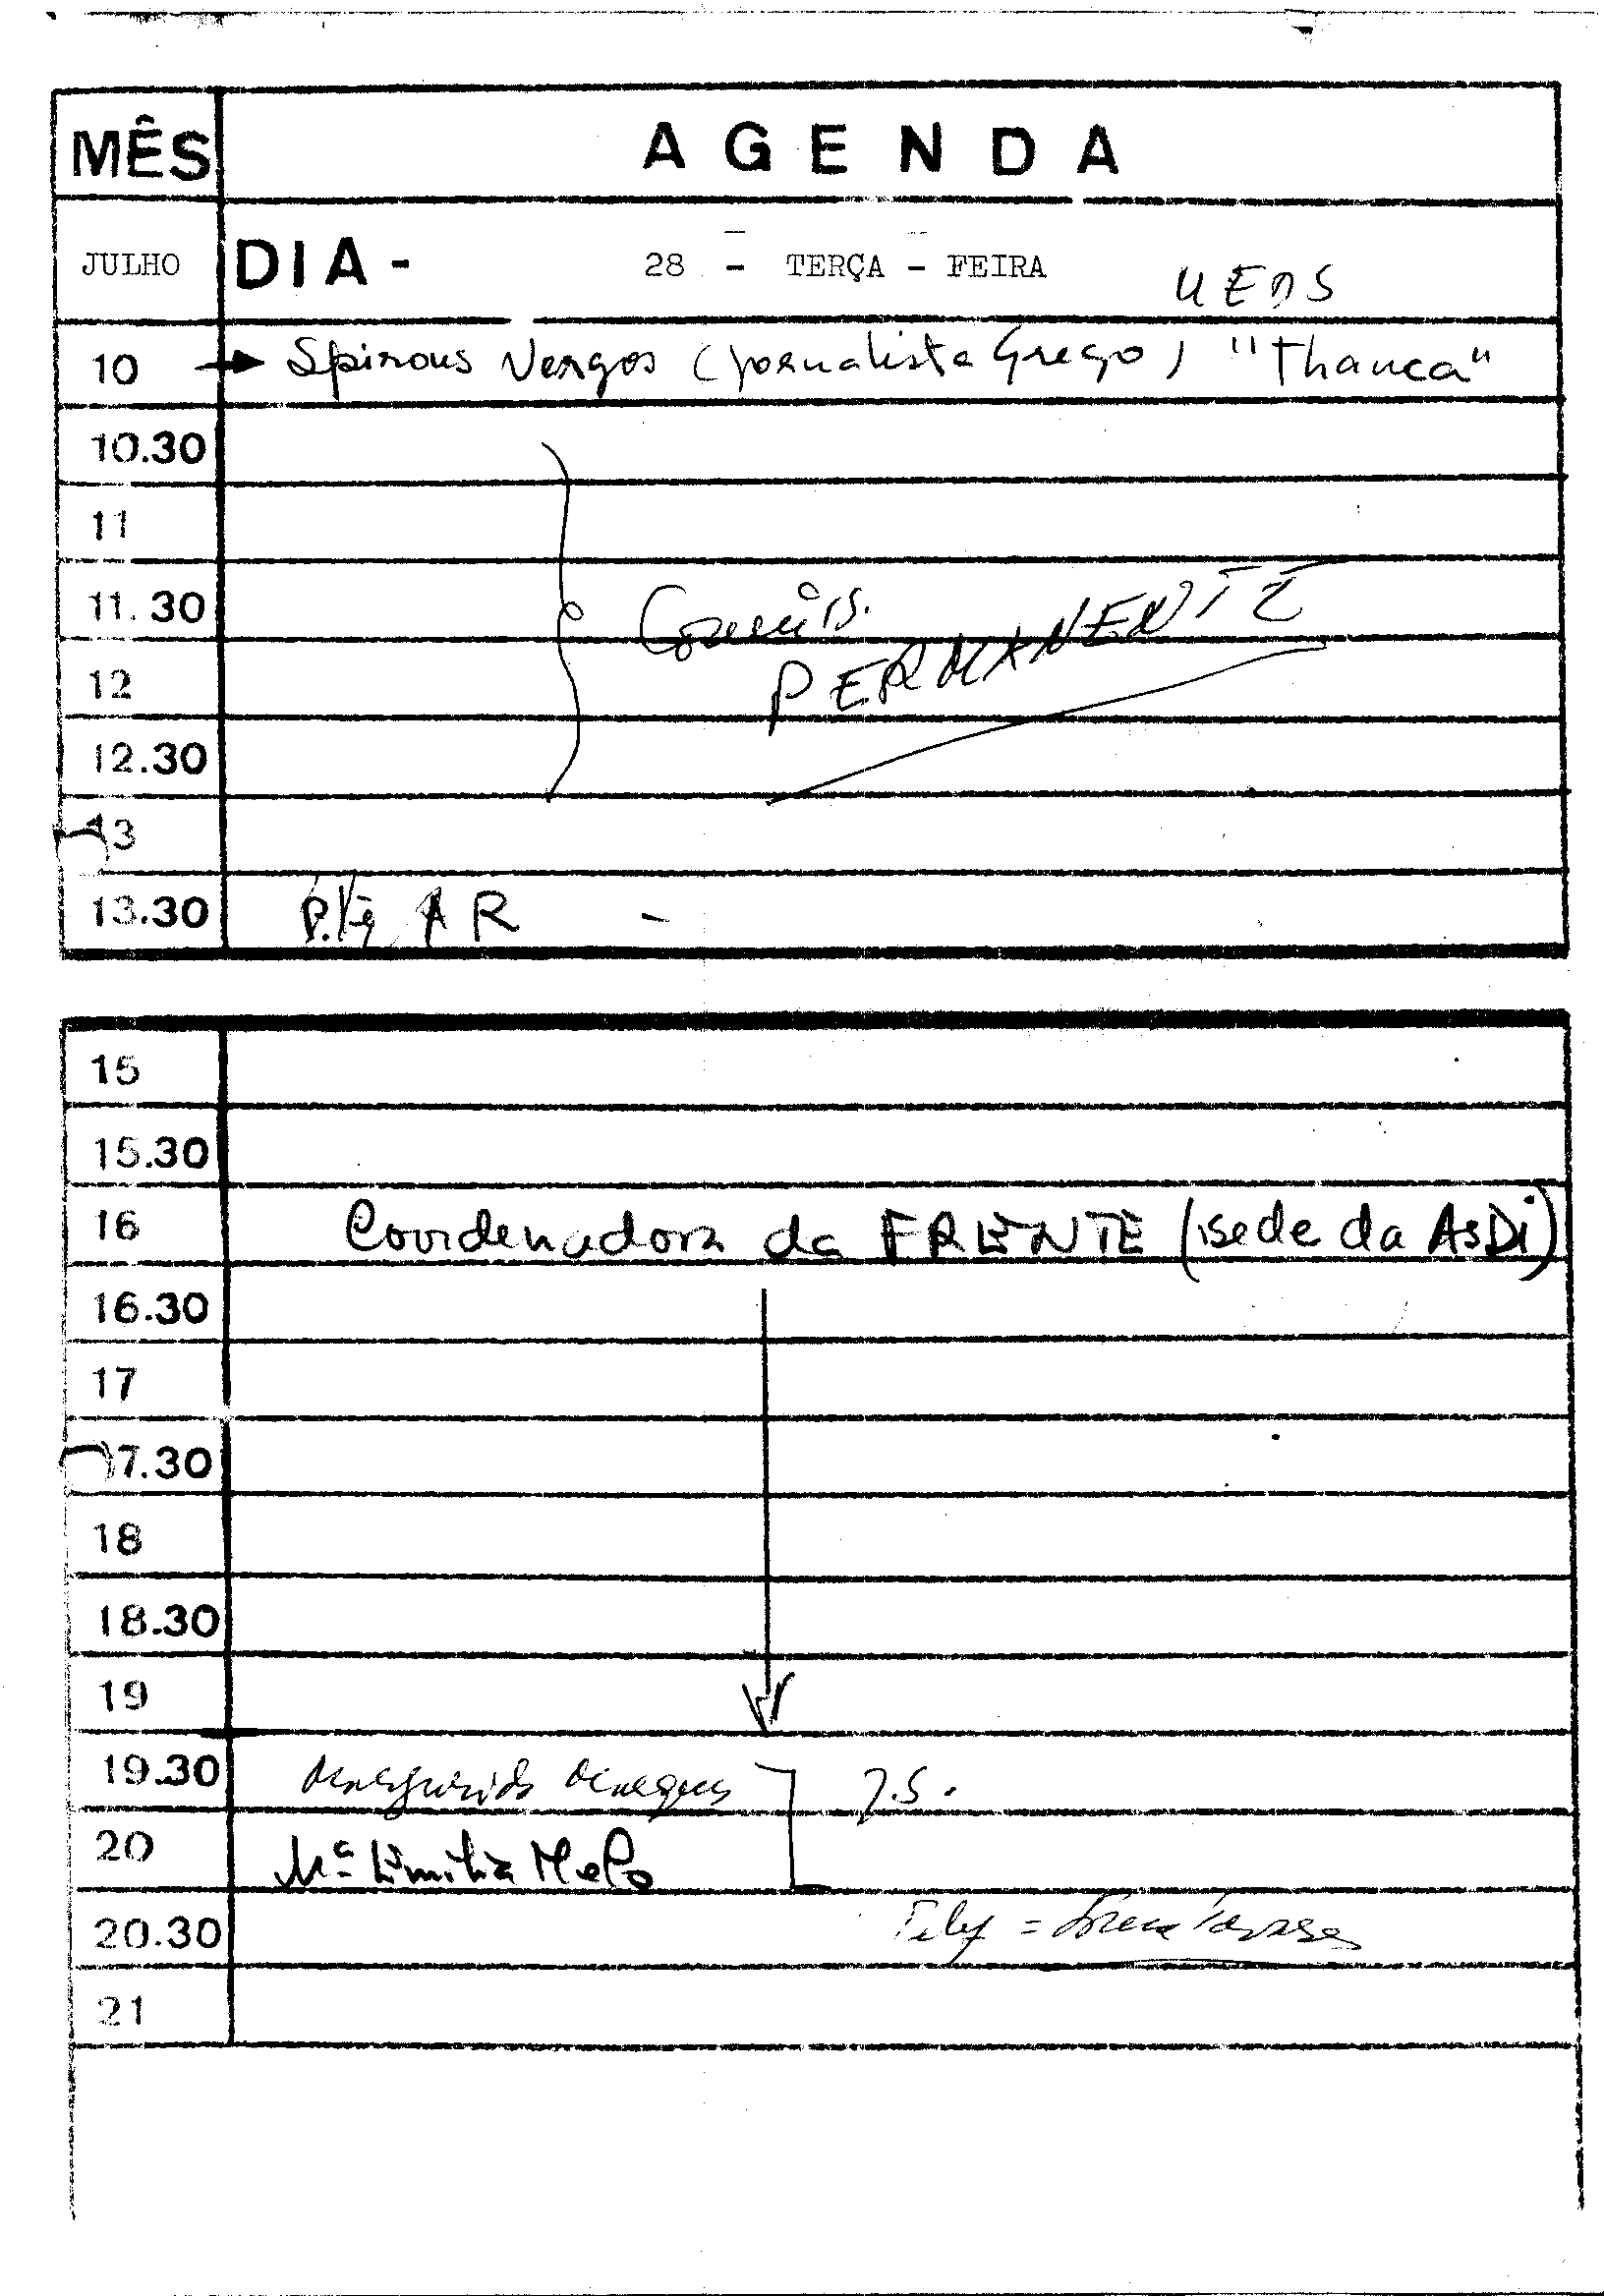 MÊS A G E N D A
JULHO DIA - 28 - TERÇA - FEIRA UEDS
10 Spirous Vergos (jornalista Grego) "Thanea"
10.30
11
11.30 Comiss.
12 PERMANENTE
12.30
13
13.30 AR -
15
15.30
16 Coordenadora da FRENTE (sede da ASDI)
16.30
17
17.30
18
18.30
19
19.30 J.S.
20 Mª Emilia Melo
20.30 Telef =
21